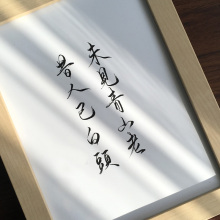 未見青山老
昔人已白頭